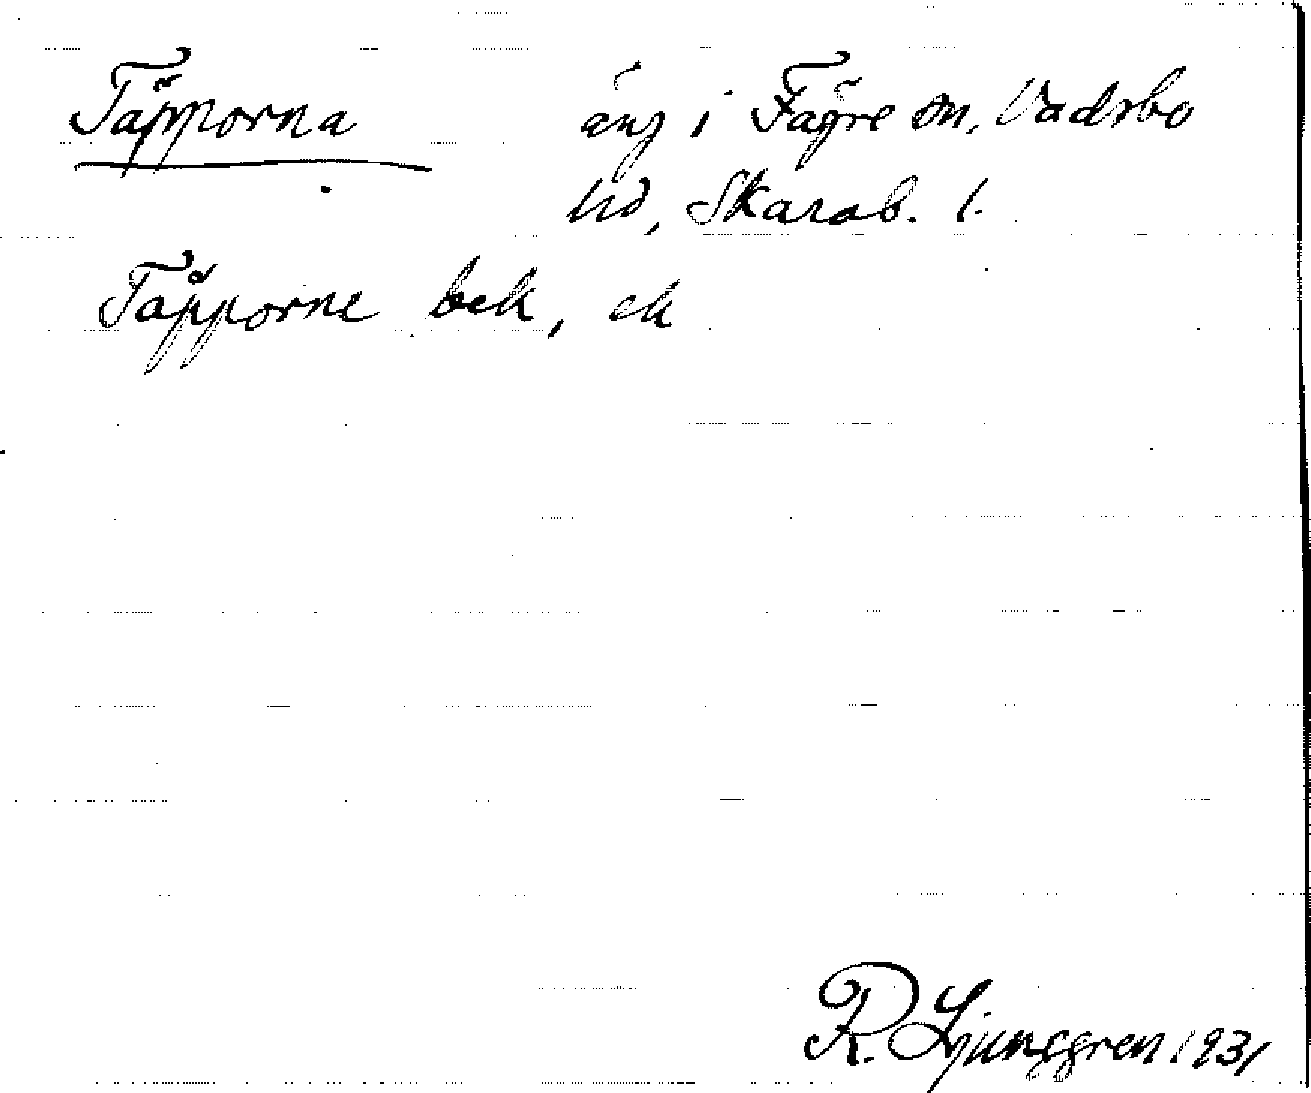 Täpporna äng i Fägre sn, Vadsbo
hd, Skarab. l.
Täpporne bek, ek
R. Ljunggren 1931